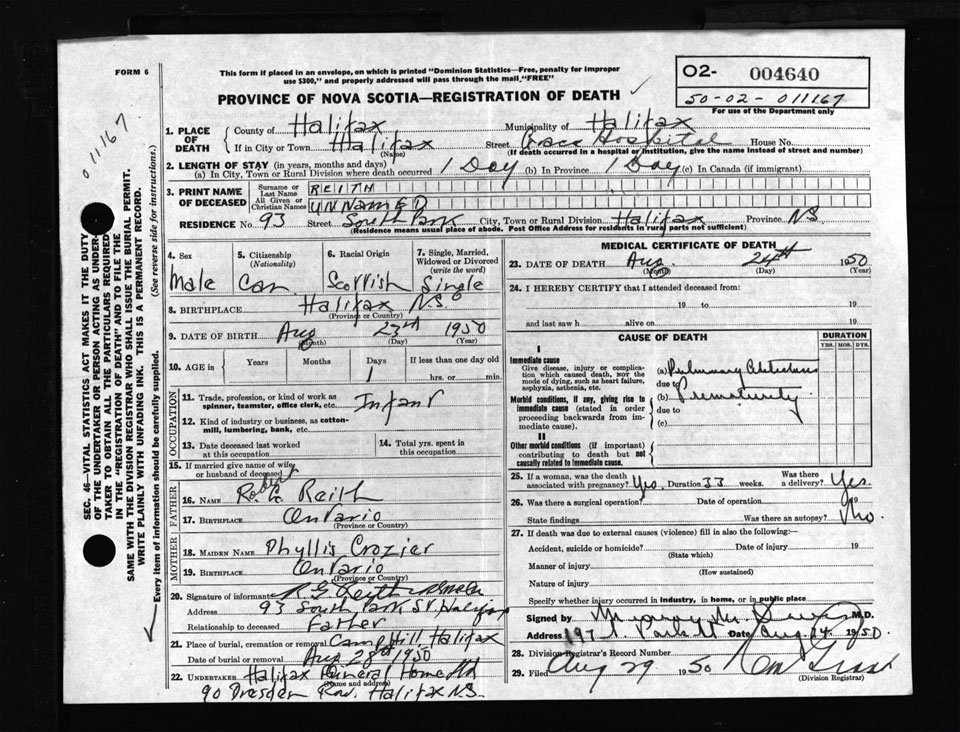 FORM 6
This form if placed in an envelope, on which is printed "Dominion Statistics—Free, penalty for improper
use $300," and properly addressed will pass through the mail "FREE"
O2- 004640
50-02-011167
For use of the Department only
PROVINCE OF NOVA SCOTIA—REGISTRATION OF DEATH
011167
1. PLACE OF DEATH
County of Halifax Municipality of Halifax
If in City or Town Halifax Street Hospital House No.
(Name) (If death occurred in a hospital or institution, give the name instead of street and number)
2. LENGTH OF STAY (in years, months and days)
(a) In City, Town or Rural Division where death occurred 1 Day (b) In Province 1 Day (c) In Canada (if immigrant)
3. PRINT NAME OF DECEASED
Surname or Last Name REITH
All Given or Christian Names UNNAMED
RESIDENCE No. 93 Street South Park City, Town or Rural Division Halifax Province NS
(Residence means usual place of abode. Post Office Address for residents in rural parts not sufficient)
4. Sex Male
5. Citizenship (Nationality) Can
6. Racial Origin Scottish
7. Single, Married, Widowed or Divorced (write the word) Single
8. BIRTHPLACE Halifax N.S.
(Province or Country)
9. DATE OF BIRTH Aug 23rd 1950
(Month) (Day) (Year)
10. AGE in Years Months Days 1 If less than one day old hrs. or min.
OCCUPATION
11. Trade, profession, or kind of work as
spinner, teamster, office clerk, etc. Infant
12. Kind of industry or business, as cotton-
mill, lumbering, bank, etc.
13. Date deceased last worked
at this occupation
14. Total yrs. spent in
this occupation
15. If married give name of wife
or husband of deceased
FATHER
16. NAME Robert G Reith
17. BIRTHPLACE Ontario
(Province or Country)
MOTHER
18. MAIDEN NAME Phyllis Crozier
19. BIRTHPLACE Ontario
(Province or Country)
20. Signature of informant R G Reith
Address 93 South Park St. Halifax
Relationship to deceased Father
21. Place of burial, cremation or removal Camp Hill Halifax
Date of burial or removal Aug 28th 1950
22. UNDERTAKER Halifax Funeral Home Ltd
(Name and address)
90 Dresden Row. Halifax N.S.
MEDICAL CERTIFICATE OF DEATH
23. DATE OF DEATH Aug. 24th 1950
(Month) (Day) (Year)
24. I HEREBY CERTIFY that I attended deceased from:
19 to 19
and last saw h alive on 19
CAUSE OF DEATH
DURATION
YRS. MOS. DYS.
I
Immediate cause
Give disease, injury or complica-
tion which caused death, NOT the
mode of dying, such as heart failure,
asphyxia, asthenia, etc.
(a) Pulmonary Atelectasis
due to
Morbid conditions, if any, giving rise to
immediate cause (stated in order
proceeding backwards from im-
mediate cause).
(b) Prematurity
due to
(c)
II
Other morbid conditions (if important)
contributing to death but not
causally related to immediate cause.
25. If a woman, was the death
associated with pregnancy? Yes. Duration 33 weeks. Was there a delivery? Yes.
26. Was there a surgical operation? Date of operation 19
State findings Was there an autopsy? No
27. If death was due to external causes (violence) fill in also the following:—
Accident, suicide or homicide? Date of injury 19
(State which)
Manner of injury
(How sustained)
Nature of injury
Specify whether injury occurred in industry, in home, or in public place
Signed by M.D.
Address 197 Date Aug. 24 1950
28. Division Registrar's Record Number
29. Filed Aug 29 1950 Grant
(Division Registrar)
SEC. 46—VITAL STATISTICS ACT MAKES IT THE DUTY
OF THE UNDERTAKER OR PERSON ACTING AS UNDER-
TAKER TO OBTAIN ALL THE PARTICULARS REQUIRED
IN THE "REGISTRATION OF DEATH" AND TO FILE THE
SAME WITH THE DIVISION REGISTRAR WHO SHALL ISSUE THE BURIAL PERMIT.
WRITE PLAINLY WITH UNFADING INK. THIS IS A PERMANENT RECORD.
Every item of information should be carefully supplied. (See reverse side for instructions.)